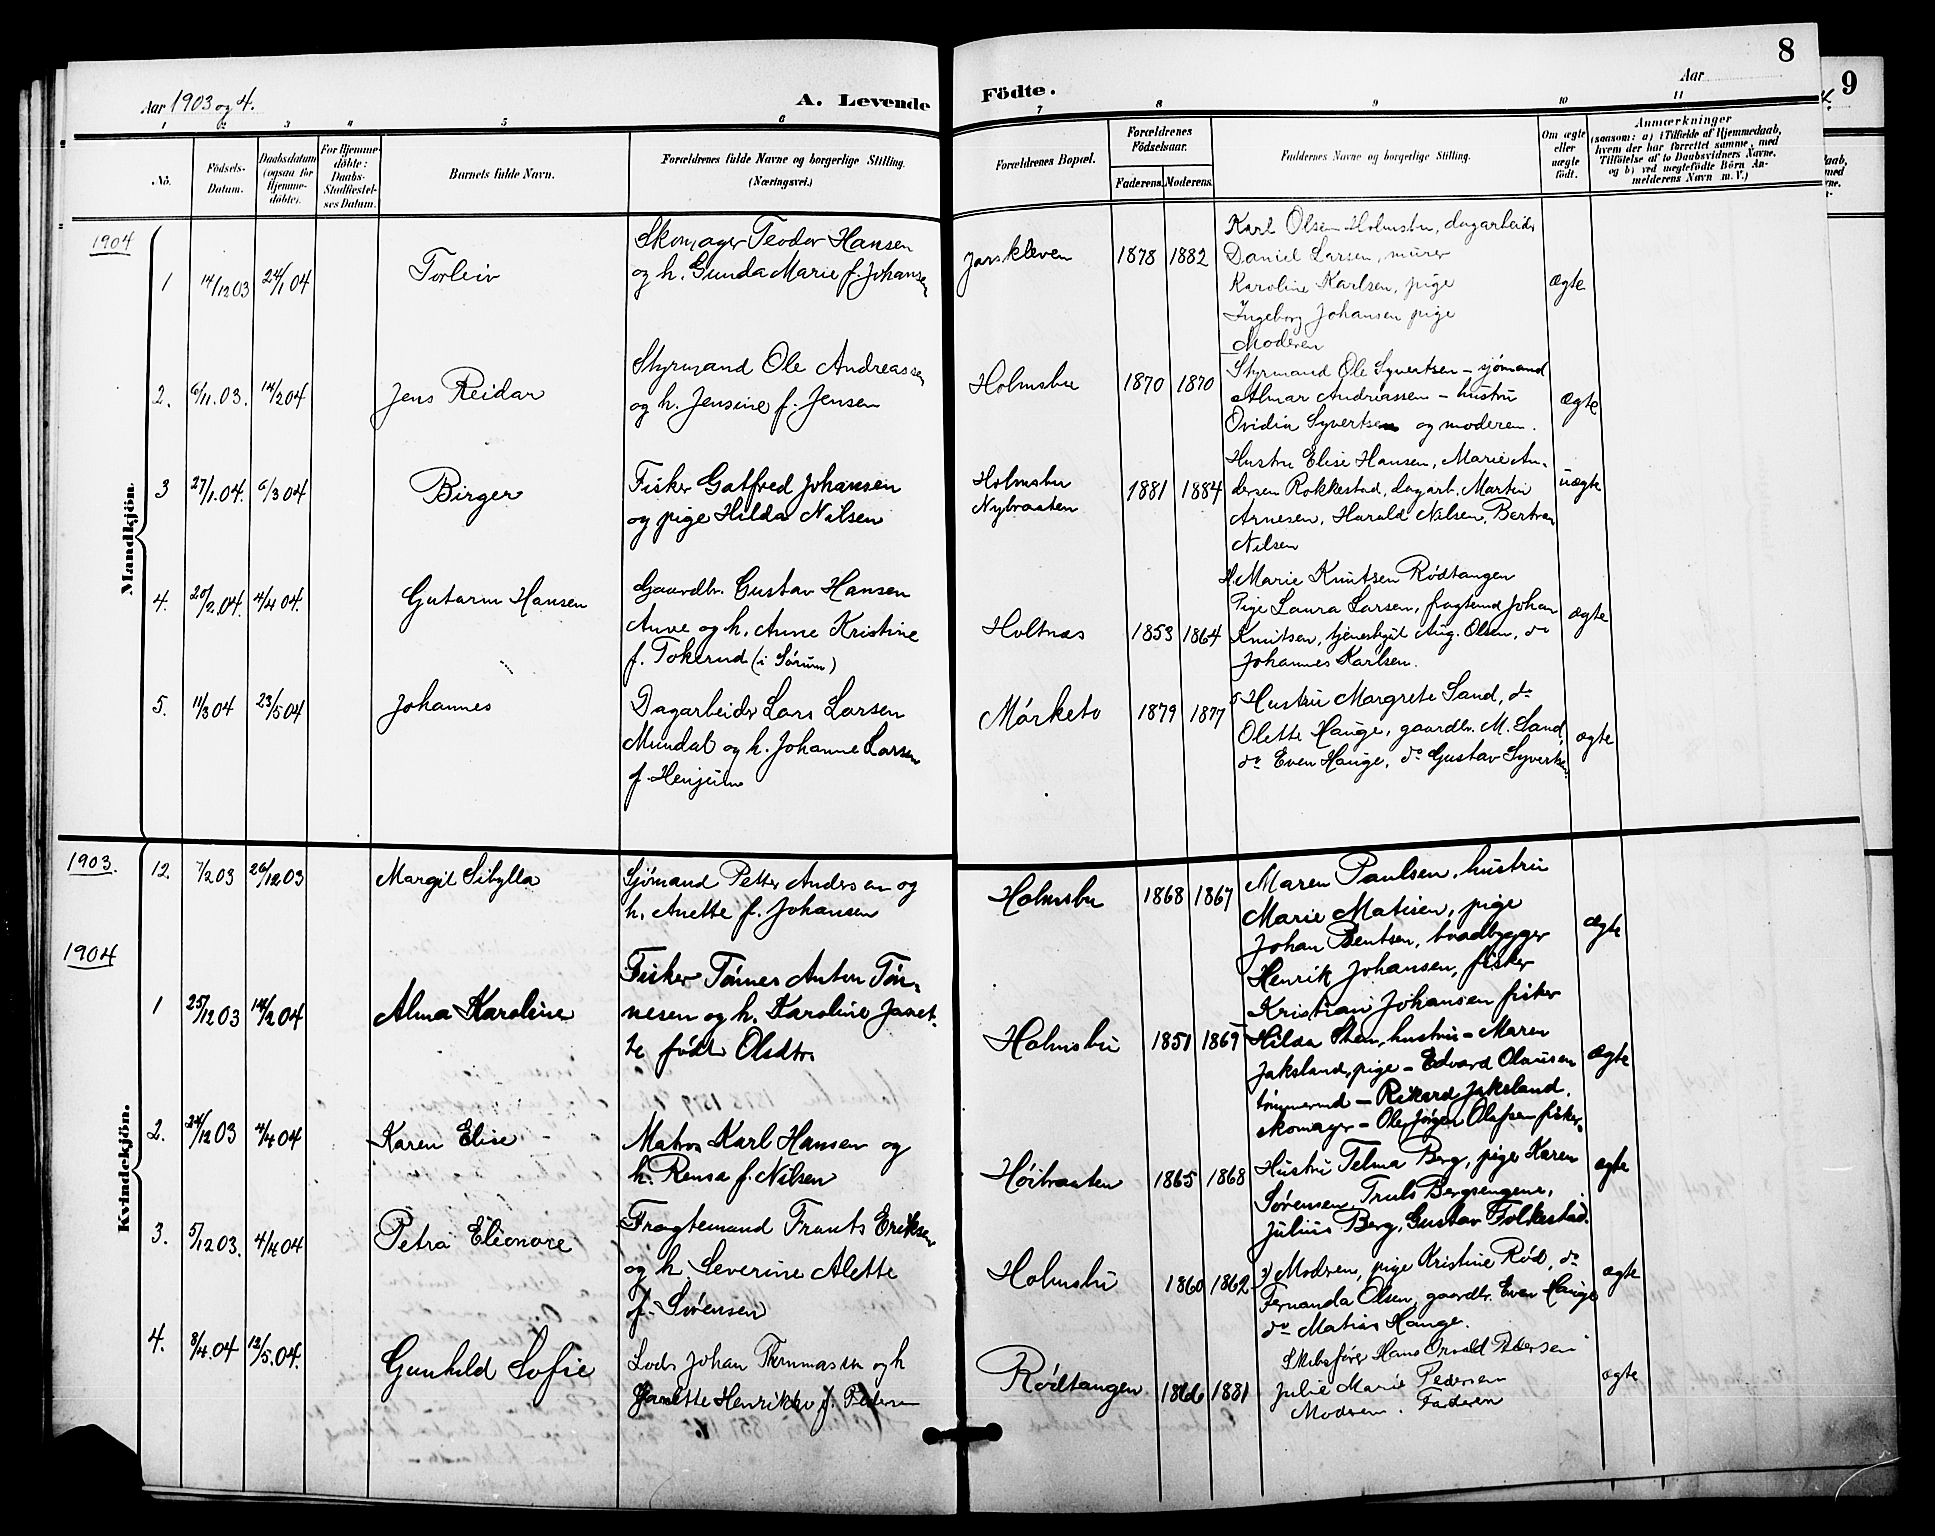 8
9
Aar 1903 og 4.
A. Levende
Födte.
Aar
1 2 3 4 5 6
7 8 9 10 11
No.
Födsels-
Datum.
Daabsdatum
(ogsaa for
Hjemme-
döbte).
For Hjemme-
döbte:
Daabs-
Stadfæstel-
ses Datum.
Barnets fulde Navn.
Forældrenes fulde Navne og borgerlige Stilling.
(Næringsvei.)
Forældrenes Bopæl.
Forældrenes
Födselsaar.
Faderens. Moderens.
Faddernes Navne og borgerlige Stilling.
Om ægte
eller
uægte
födt.
Anmærkninger
(saasom: a) i Tilfælde af Hjemmedaab,
hvem der har forrettet samme, med
Tilföielse af to Daabsvidners Navne,
og b) ved uægtefödte Börn An-
melderens Navn m. V.)
Mandkjön.
1904
1 14/12 03 24/1 04 Torleiv
Skomager Teodor Hansen
og h. Gunda Marie f. Johansen
Jarskleven 1878 1882
Karl Olsen Holmsbu, dagarbeider
Daniel Larsen, murer
Karoline Karlsen, pige
Ingeborg Johansen pige
Moderen
ægte
2. 6/11.03. 14/2 04 Jens Reidar
Styrmand Ole Andreassen
og h. Jensine f. Jensen
Holmsbu 1870 1870
Styrmand Ole Syvertsen - sjømand
Almar Andreassen - hustru
Ovidia Syvertsen og moderen.
ægte
3 27/1.04. 6/3 04 Birger
Fisker Gotfred Johansen
og pige Hilda Nilsen
Holmsbu
Nybraaten
1881 1884
Hustru Elise Hansen, Marie An-
dersen Rokkestad, dagarb. Martin
Arnesen, Harald Nilsen, Bertran
Nilsen
uægte
4. 20/2.04. 4/4 04. Gutorm Hansen
Gaardbr. Gustav Hansen
Anve og h. Anne Kristine
f. Tokerud (i Sørum)
Holtnæs 1853 1864
H. Marie Knutsen Rødtangen
Pige Laura Larsen, fragtemd Johan
Knutsen, tjenestegut Aug. Olsen, do
Johannes Karlsen.
ægte
5. 11/3 04 23/5 04 Johannes
Dagarbeider Lars Larsen
Mundal og h. Johanne Larsen
f. Henjum
Mørketo 1879 1877
Hustru Margrete Sand, do
Olette Hauge, gaardbr. M. Sand,
do Even Hauge, do Gustav Syvertsen
ægte
Kvindekjön.
1903.
12. 7/2 03 26/12 03 Margit Sibylla
Sjømand Petter Andersen og
h. Anette f. Johansen
Holmsbu 1868 1867
Maren Paulsen, hustru
Marie Matisen, pige
Johan Bentsen, baadbygger
Henrik Johansen, fisker
Kristian Johansen fisker
ægte
1904
1 25/12 03 14/2 04 Alma Karoline
Fisker Tønnes Anton Tøn-
nesen og h. Karoline Janet-
te født Olsdtr.
Holmsbu 1851 1869
Hilda Sten, hustru - Maren
Jaksland, pige - Edvard Olausen
tømmermd - Rikard Jaksland,
skomager - Ole Jørgen Olafsen fisker.
ægte
2. 24/12 03 4/4 04 Karen Elise
Matros Karl Hansen og
h. Rensa f. Nilsen
Høibraaten 1865 1868
Hustru Telma Berg, pige Karen
Sørensen, Truls Bergsengene,
Julius Berg, Gustav Folkestad.
ægte
3. 5/12 03. 4/4 04 Petra Eleonore
Fragtemand Frants Eriksen
og h Severine Alette
f. Sørensen
Holmsbu 1860 1862
Modren, pige Kristine Rød, do
Fernanda Olsen, gaardbr. Even Hauge
do Matias Hauge.
ægte
4. 8/4.04 12/5.04. Gunhild Sofie
Lods Johan Thommassen og h
Janette Henrikke f. Pedersen
Rødtangen 1866 1881
Skibsfører Hans Orvald Pedersen
Julie Marie Pedersen
Modren. Faderen
ægte